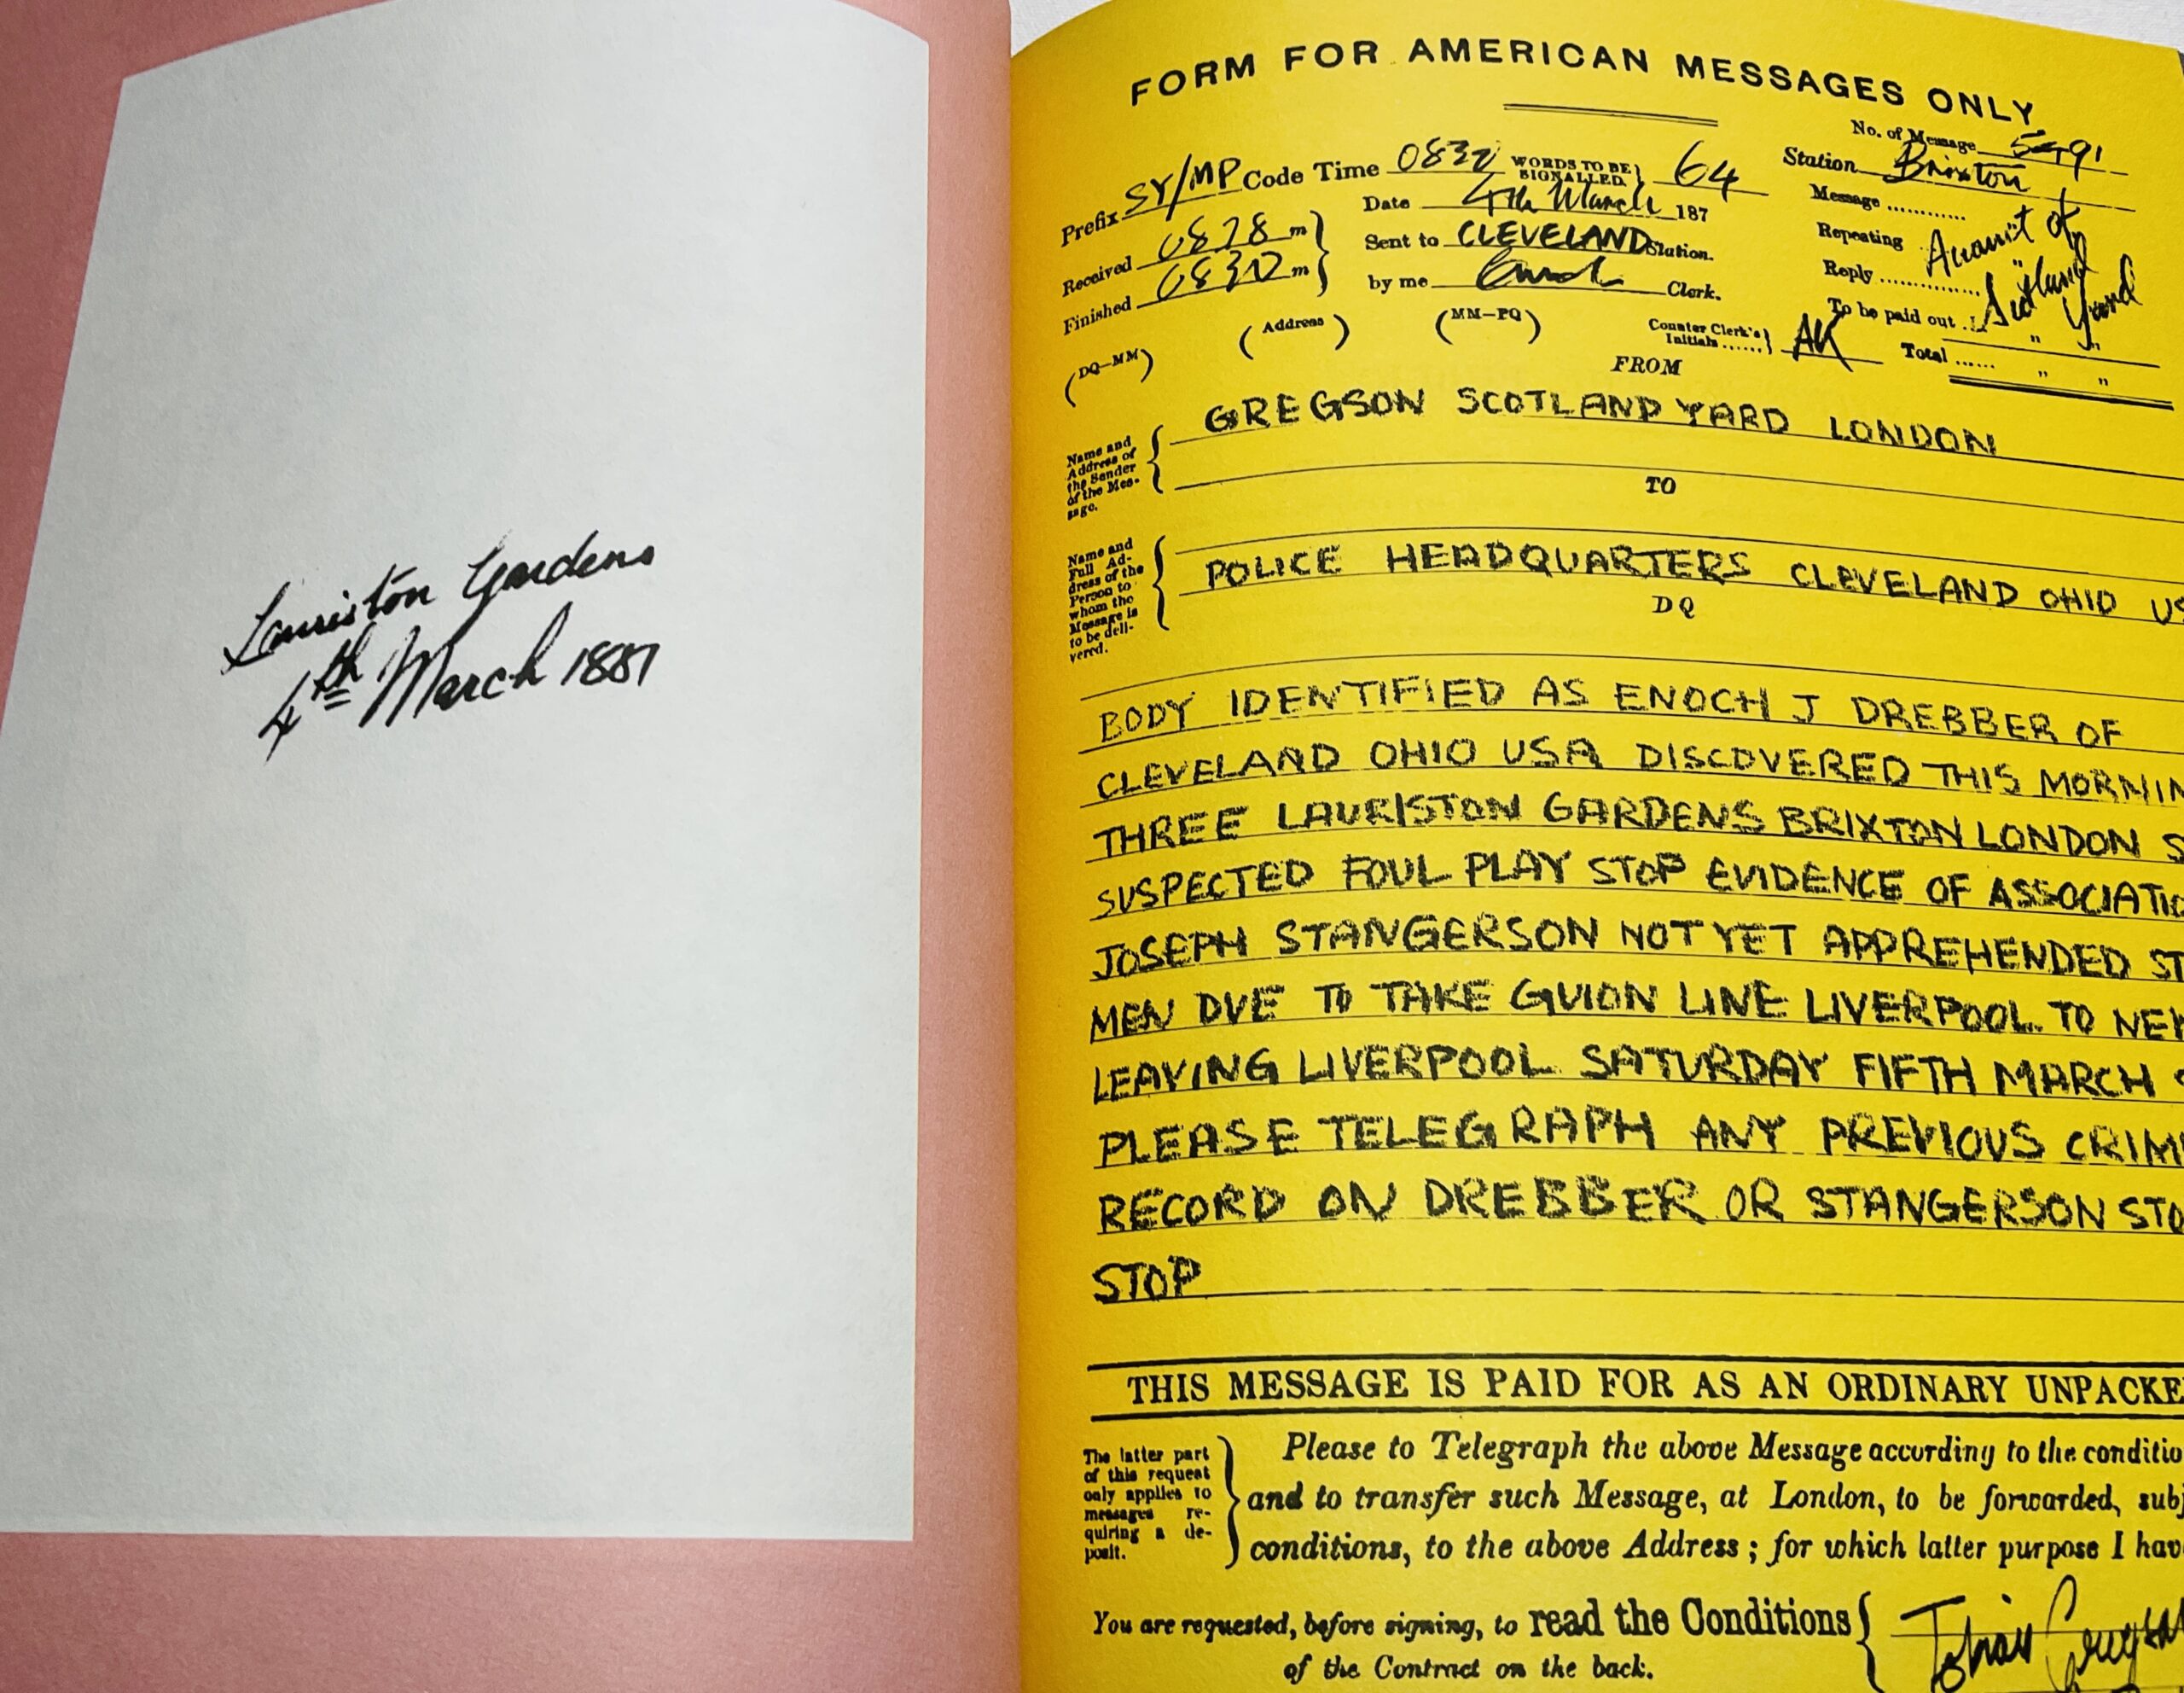 Lauriston Gardens
4th March 1887
FORM FOR AMERICAN MESSAGES ONLY
No. of Message
Prefix SY/MP Code Time 0832 WORDS TO BE SIGNALLED. } 64 Station Brixton
Received 0828 m } Date 4th March 187 Message ............
Finished 0832 m } Sent to CLEVELAND Station. Repeating Account of
by me Clerk. Reply .............. Scotland
To be paid out ... Yard
(DQ—MM) (Address) (MM—PQ) Counter Clerk's Initials ...... } AK Total ...... " "
FROM
Name and Address of the Sender of the Mes- sage. { GREGSON SCOTLAND YARD LONDON
TO
Name and Full Ad- dress of the Person to whom the Message is to be deli- vered. { POLICE HEADQUARTERS CLEVELAND OHIO US
DQ
BODY IDENTIFIED AS ENOCH J DREBBER OF
CLEVELAND OHIO USA DISCOVERED THIS MORNIN
THREE LAURISTON GARDENS BRIXTON LONDON S
SUSPECTED FOUL PLAY STOP EVIDENCE OF ASSOCIATIO
JOSEPH STANGERSON NOT YET APPREHENDED ST
MEN DUE TO TAKE GUION LINE LIVERPOOL TO NEW
LEAVING LIVERPOOL SATURDAY FIFTH MARCH S
PLEASE TELEGRAPH ANY PREVIOUS CRIMI
RECORD ON DREBBER OR STANGERSON STO
STOP
THIS MESSAGE IS PAID FOR AS AN ORDINARY UNPACKE
The latter part of this request only applies to messages re- quiring a de- posit. }
Please to Telegraph the above Message according to the conditio
and to transfer such Message, at London, to be forwarded, subj
conditions, to the above Address ; for which latter purpose I hav
You are requested, before signing, to read the Conditions {
of the Contract on the back.
Tobias Gregson